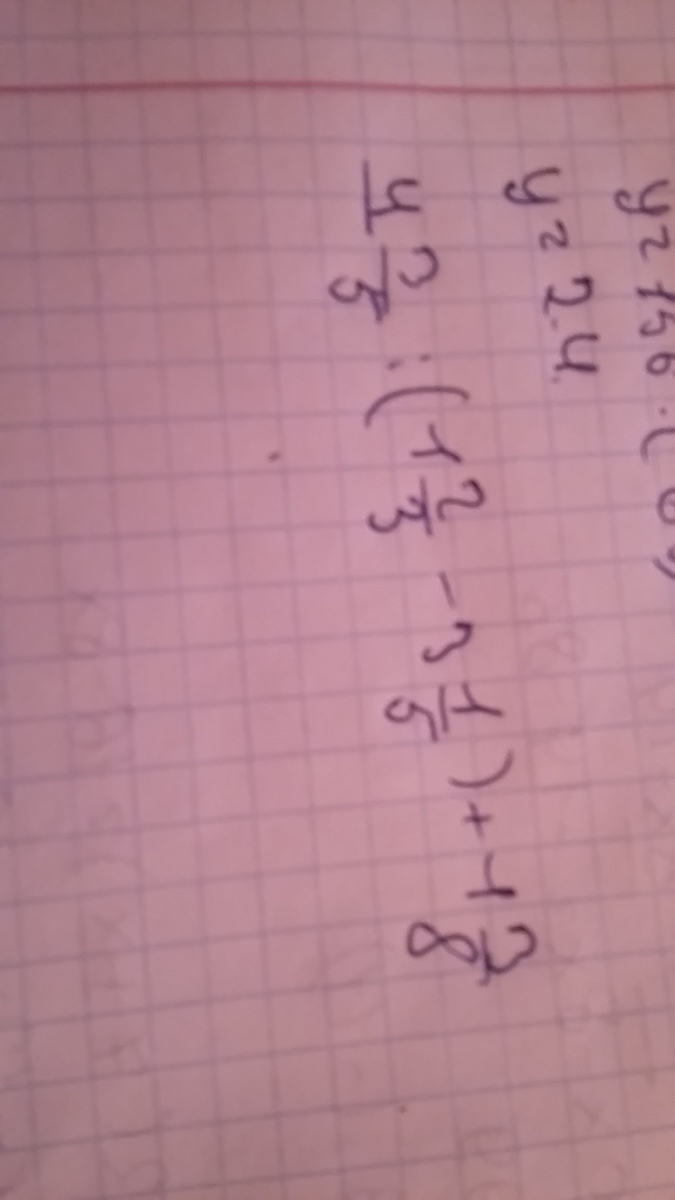 y = 156 : (
y = 2.4
4 3/5 : (1 2/3 - 3 1/5) + 1 3/8